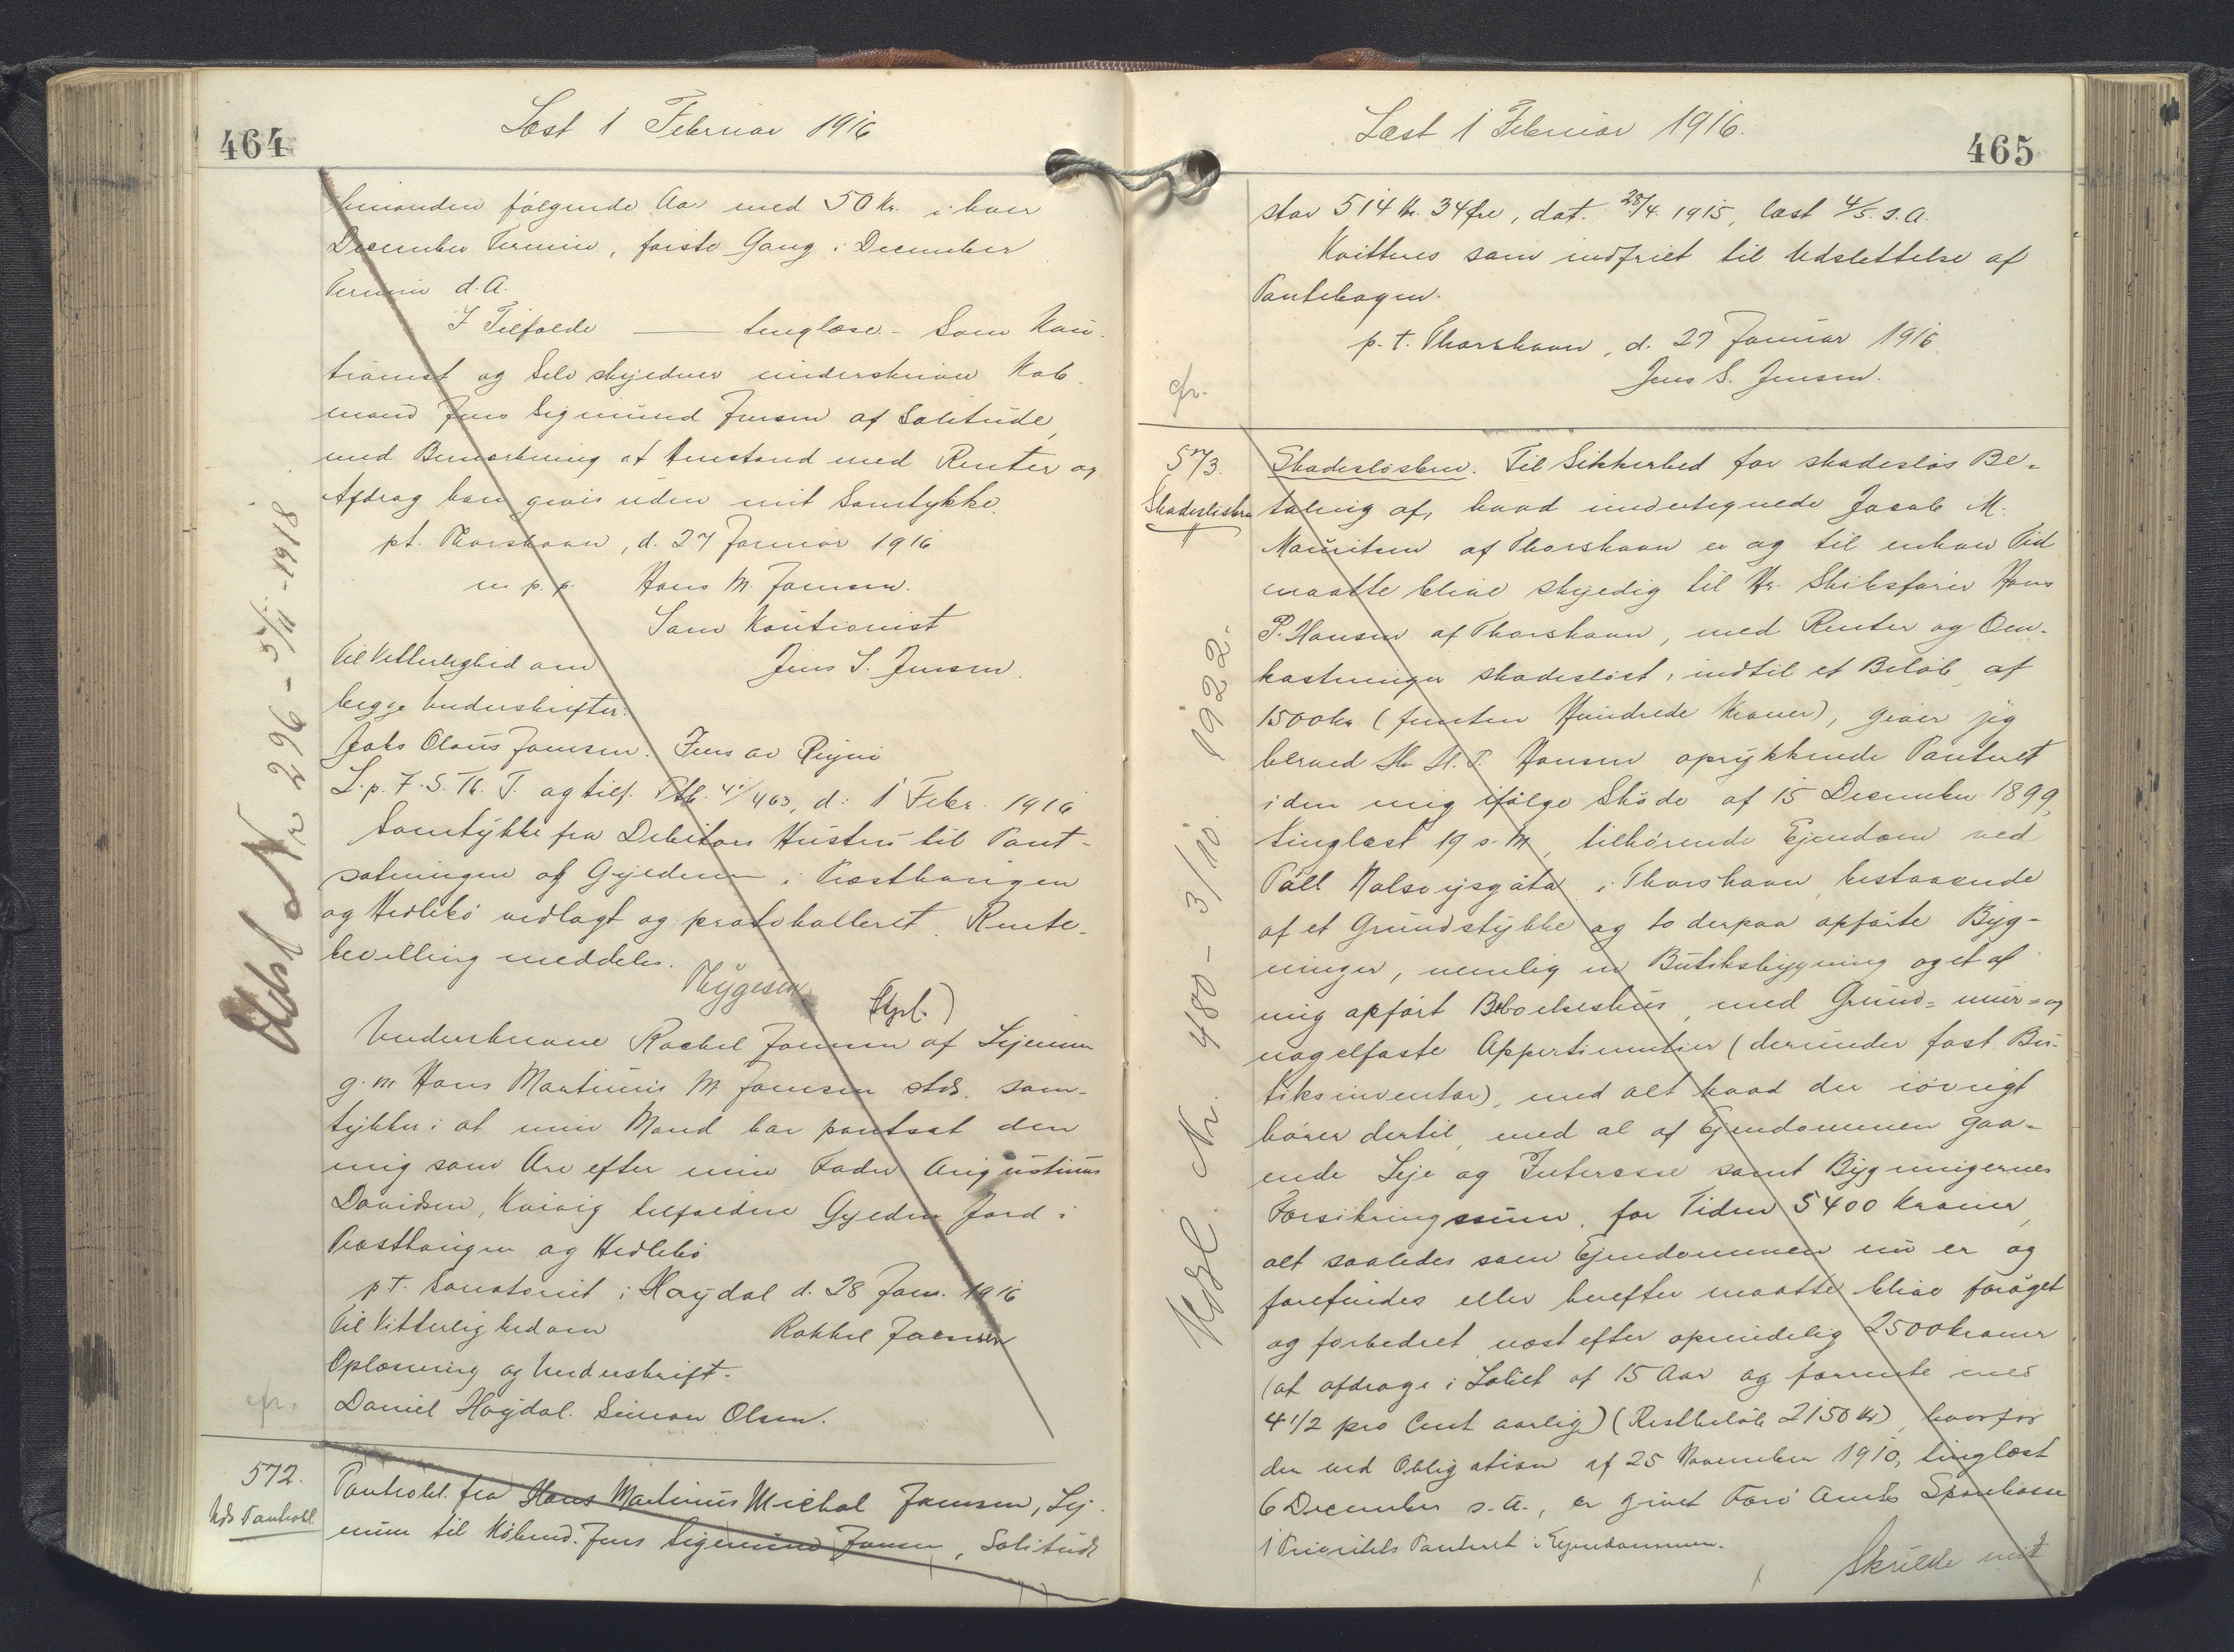 464
Læst 1 Februar 1916
hinanden følgende Aar med 50 Kr. i hver
December Termin, første Gang i December
Termin d.A.
I Tilfælde —— tinglæse. Som Kau-
tionist og Selvskyldner underskriver Køb-
mand Jens Sigmund Jensen af Solitude,
med Bemærkning at Henstand med Renter og
Afdrag kan givis uden mit Samtykke.
pt. Thorshavn, d. 27 Januar 1916
m. p. p. Hans M. Joensen.
Som Kautionist
Til Vitterlighed om Jens S. Jensen.
begge Underskrifter:
Olaus Joensen. Jens av Reyni
L. p. F. S. Th. T. og tilf. Ptb. 41/463, d: 1 Febr. 1916
Samtykke fra Debitors Hustru til Pant-
sætningen af Gyldenen i Præsthavigen
og vedlagt og protokolleret. Rente-
bevilling meddeles.
Thygesen
(Gpl.)
Underskrevne Rachel Joensen af Lejenum
g. m. Hans Martinus M. Joensen stds. sam-
tykker i at min Mand har pantsat den
mig som Arv efter min Fader Augustinus
Davidsen, Kvivig tilfaldne Gylden Jord i
Præsthavigen og
pt. Sanatoriet i Hoydal d. 28 Jan. 1916
Til Vitterlighed om Rakkel Joensen
Oplæsning og Underskrift.
Daniel Høydal. Simon Olsen.
cfr.
572.
Uds Panteobl
Panteobl. fra Hans Martinus Michal Joensen, Lej-
num til Købmd. Jens Sigmund Jensen, Solitude
Udsl Nr 296 - 5/11 - 1918
465
Læst 1 Februar 1916.
stor 514 Kr. 34 Øre, dat. 28/4. 1915, læst 4/5. s.A.
Kvitteres som indfriet til Udslettelse af
Pantebogen.
p. t. Thorshavn, d. 27 Januar 1916
Jens S. Jensen.
cfr.
573.
Skadesløsbrev
Skadesløsbrev. Til Sikkerhed for skadesløs Be-
taling af, hvad undertegnede Jacob M.
Mouritsen af Thorshavn er og til enhver Tid
maatte blive skyldig til Hr. Skibsfører Hans
P. Hansen af Thorshavn, med Renter og Om-
kostninger skadesløst, indtil et Beløb af
1500 Kr (femten Hundrede Kroner), giver jeg
herved Hr H. P. Hansen oprykkende Panteret
i den mig ifølge Skøde af 15 December 1899,
tinglæst 19 s. M, tilhørende Ejendom ved
Páll Nolsoyjsgøta i Thorshavn, bestaaende
af et Grundstykke og to derpaa opførte Byg-
ninger, nemlig en Butiksbygning og et af
mig opført Beboelseshus, med Grund- mur- og
nagelfaste Appertinentier (derunder fast Bu-
tiksinventar), med alt hvad der iøvrigt
hører dertil, med al af Ejendommen gaa-
ende Leje og Interesse samt Bygningernes
Forsikringssum, for Tiden 5400 Kroner,
alt saaledes som Ejendommen nu er og
forefindes eller herefter maatte blive forøget
og forbedret, næst efter oprindelig 2500 Kroner
(at afdrage i Løbet af 15 Aar og forrente med
4 1/2 pro Cent aarlig) (Restbeløb 2150 Kr), hvorfor
der ved Obligation af 25 November 1910, tinglæst
6 December s. A., er givet Færø Amts Sparekasse
1 Prioritets Panteret i Ejendommen.
Skulde mit
Udsl. Nr. 480 - 3/10. 1922.